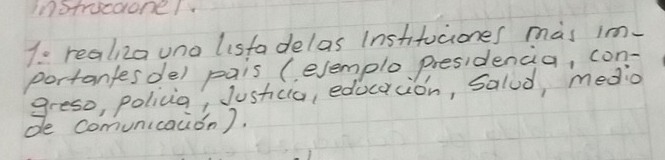 instrucciones.
1. realiza una lista de las instituciones más im-
portantes del país (ejemplo presidencia, con-
greso, policia, Justicia, educación, Salud, medio
de comunicación).